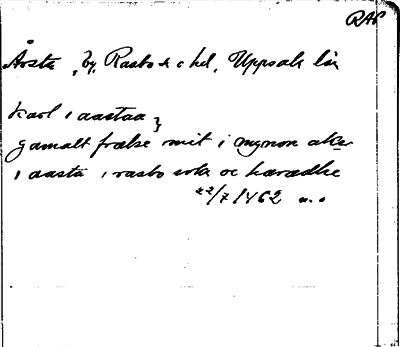 RAP
Årsta, by, Rasbo s o hd, Uppsala län
Karl i aastaa }
gamalt frælse mit i ængnom aker
i aasta i rasbo sokn oc hæradhe
22/7 1462 u..